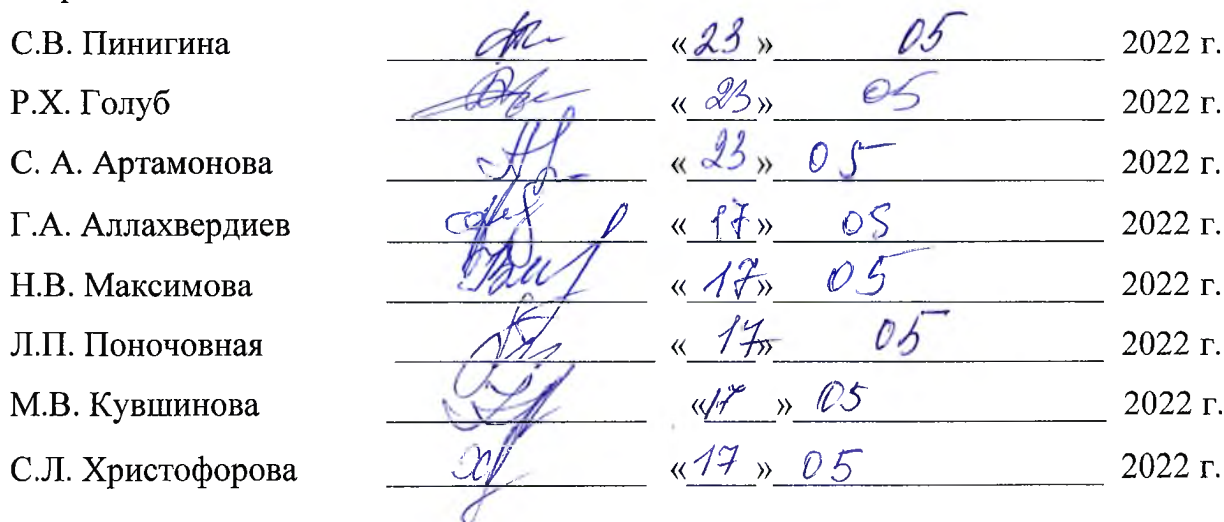 С.В. Пинигина «23» 05 2022 г.
Р.Х. Голуб «23» 05 2022 г.
С. А. Артамонова «23» 05 2022 г.
Г.А. Аллахвердиев «17» 05 2022 г.
Н.В. Максимова «17» 05 2022 г.
Л.П. Поночовная «17» 05 2022 г.
М.В. Кувшинова «17» 05 2022 г.
С.Л. Христофорова «17» 05 2022 г.